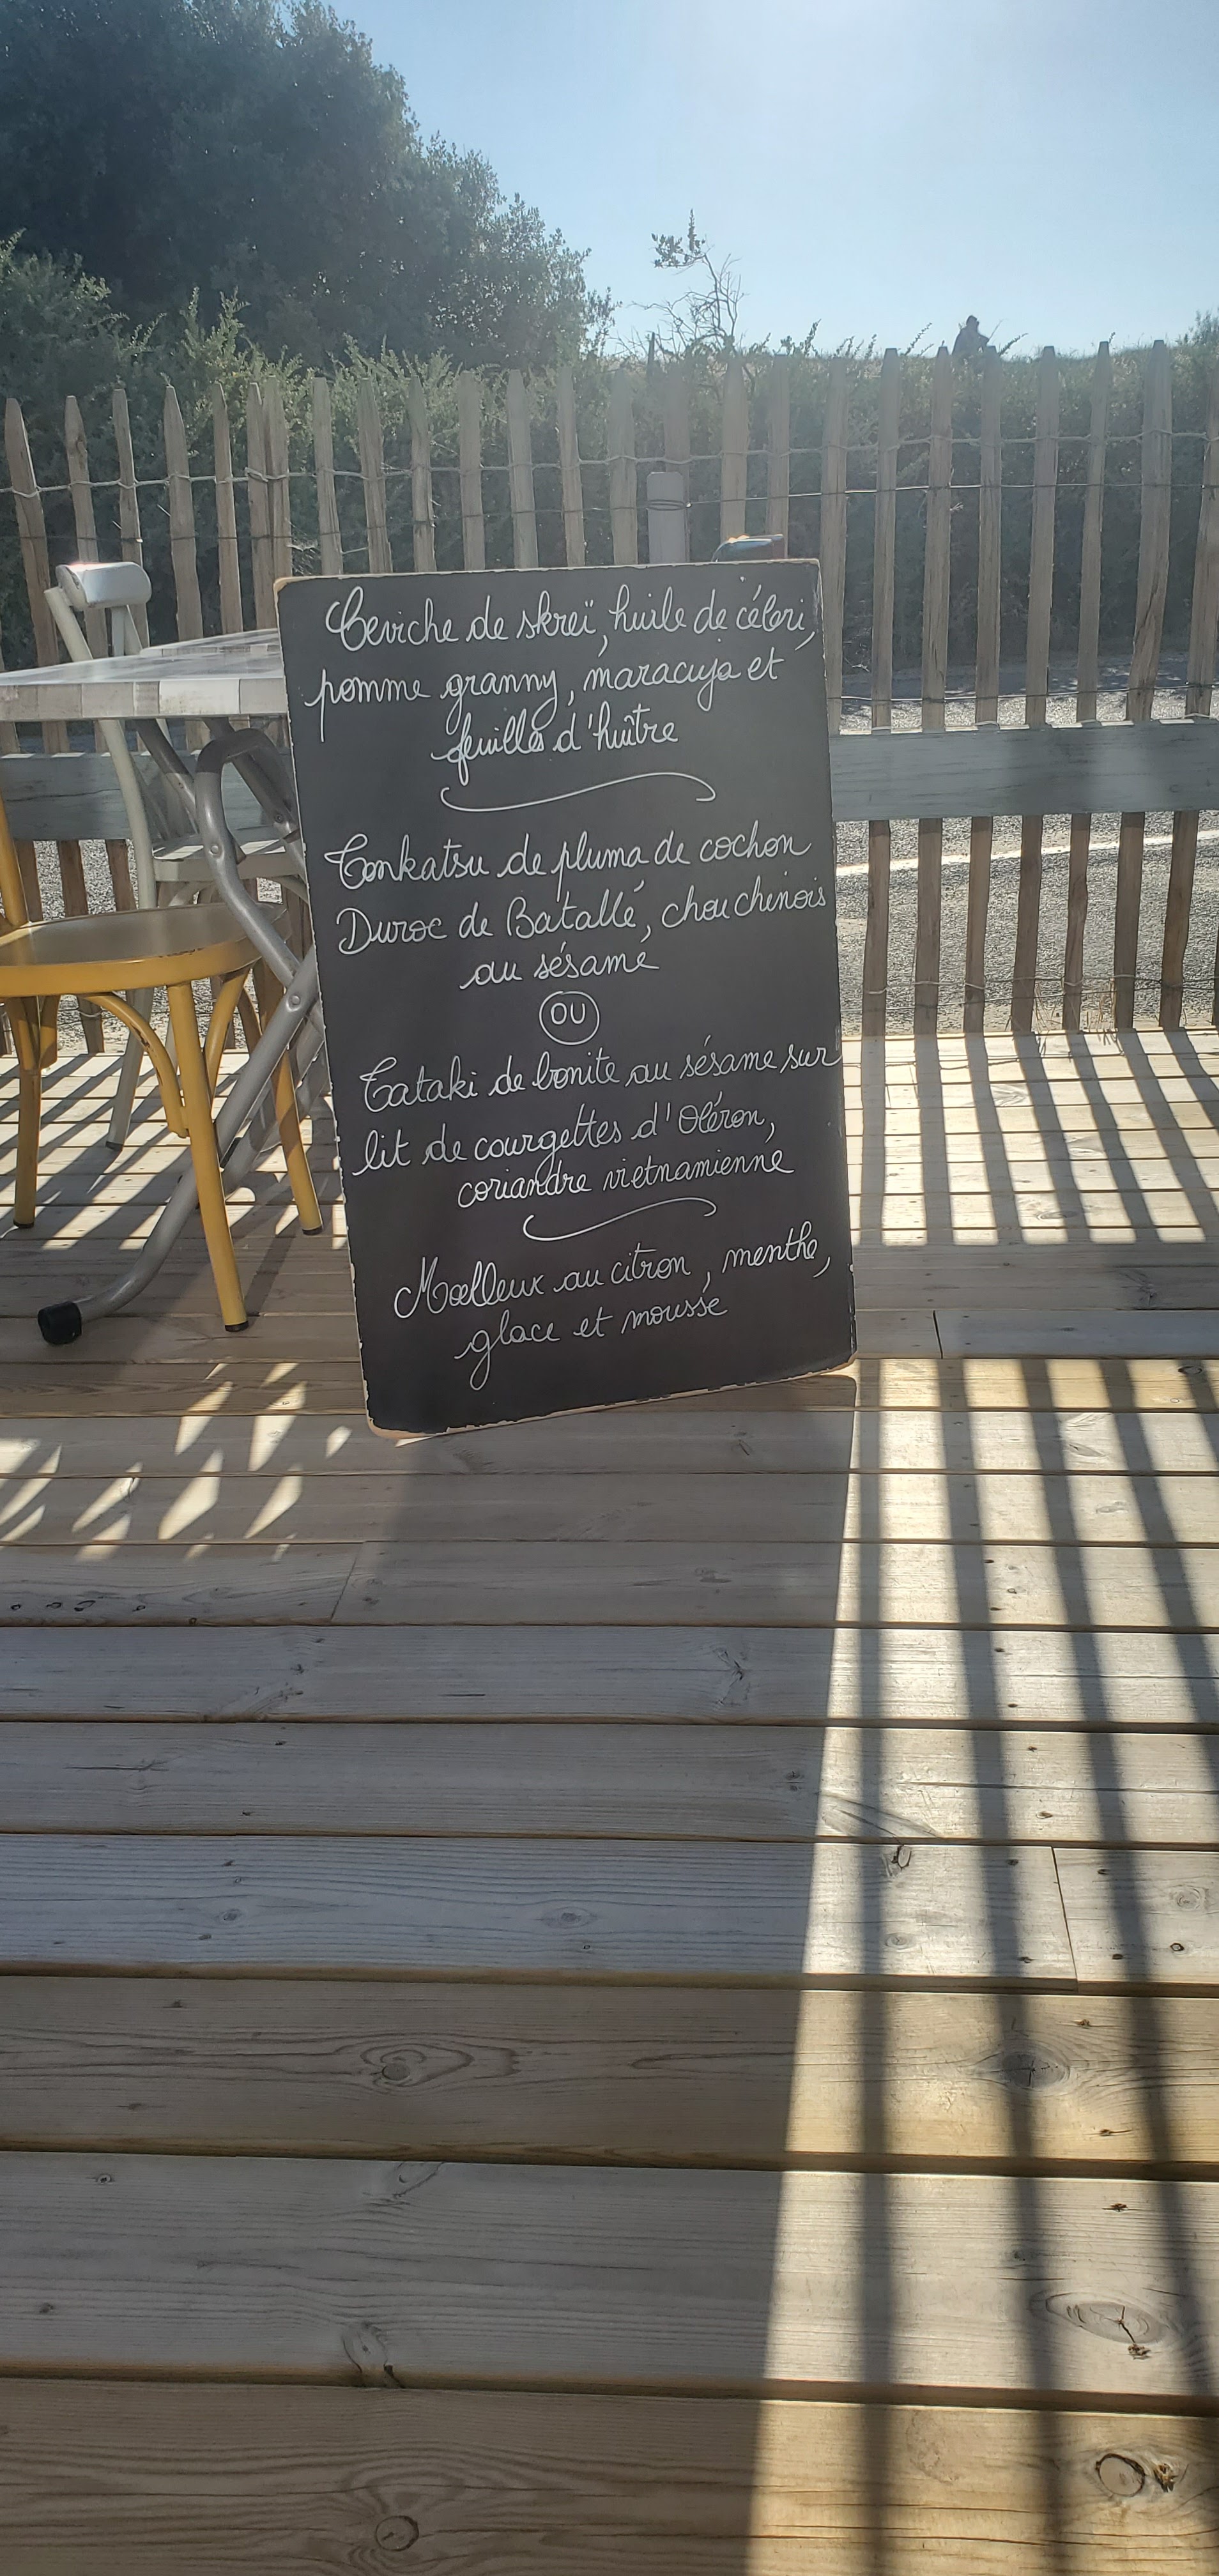 Ceviche de skreï, huile de céleri,
pomme granny, maracuja et
feuilles d'huître
Tonkatsu de pluma de cochon
Duroc de Batallé, chou chinois
au sésame
OU
Tataki de bonite au sésame sur
lit de courgettes d'Oléron,
coriandre vietnamienne
Moelleux au citron, menthe,
glace et mousse